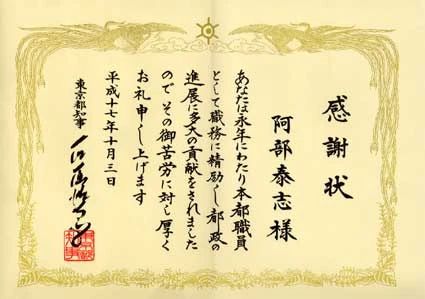 感謝状
阿部泰志様
あなたは永年にわたり本都職員
として職務に精励し都政の
進展に多大の貢献をされました
ので その御苦労に対し厚く
お礼申し上げます
平成十七年十月三日
東京都知事